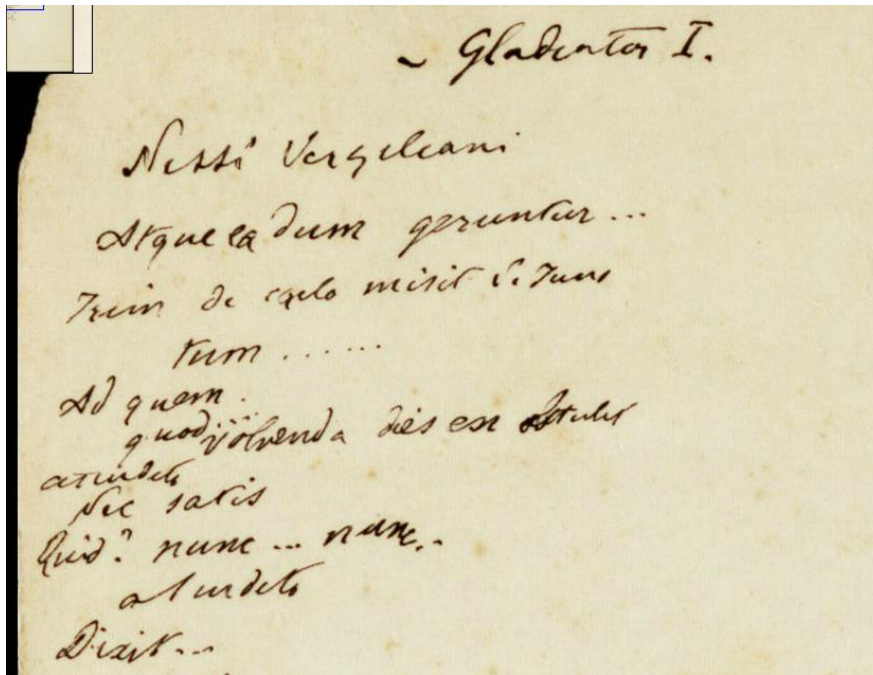 ~ Gladiator I.
Nessi Vergiliani
Atque ea dum geruntur...
Irim de caelo misit
tum ......
Ad quem.
quod.... volvenda dies en attulit
Nec satis
Quid? nunc ... nunc..
Dixit...